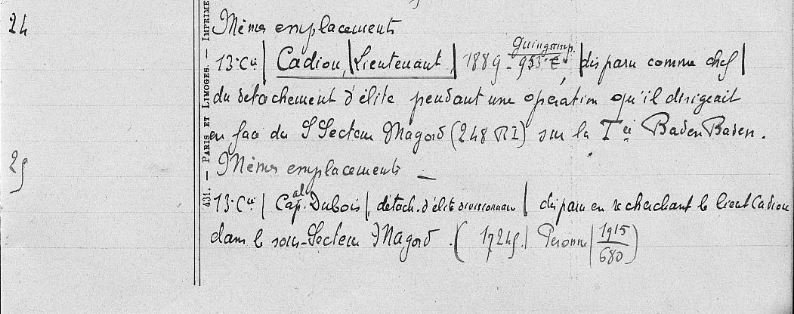 24
Mêmes emplacements
13e Cie | Cadiou, | Lieutenant | 1889 - Guingamp. 953 | disparu comme chef |
du détachement d'élite pendant une opération qu'il dirigeait
en face du S/Secteur Magord (248 RI) sur la Tée Baden Baden.
25
Mêmes emplacements -
13e Cie | Capal Dubois |, détach. d'élite divisionnaire | disparu en recherchant le lieut Cadiou
dans le sous-Secteur Magord. (17245. | Peronne | 1915/680)
431. — PARIS ET LIMOGES. — IMPRIME